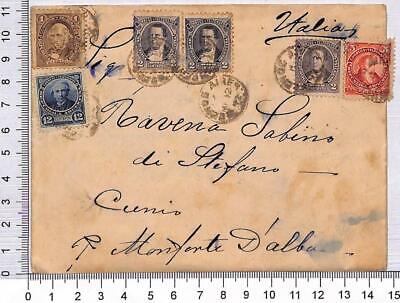 Italia
Sig
Ravena Sabino
di Stefano
Cunio
P. Monforte D'alba
1
2
2
2
5
12
12
0 1 2 3 4 5 6 7 8 9 10 11
0 1 2 3 4 5 6 7 8 9 10 11 12 13 14 15